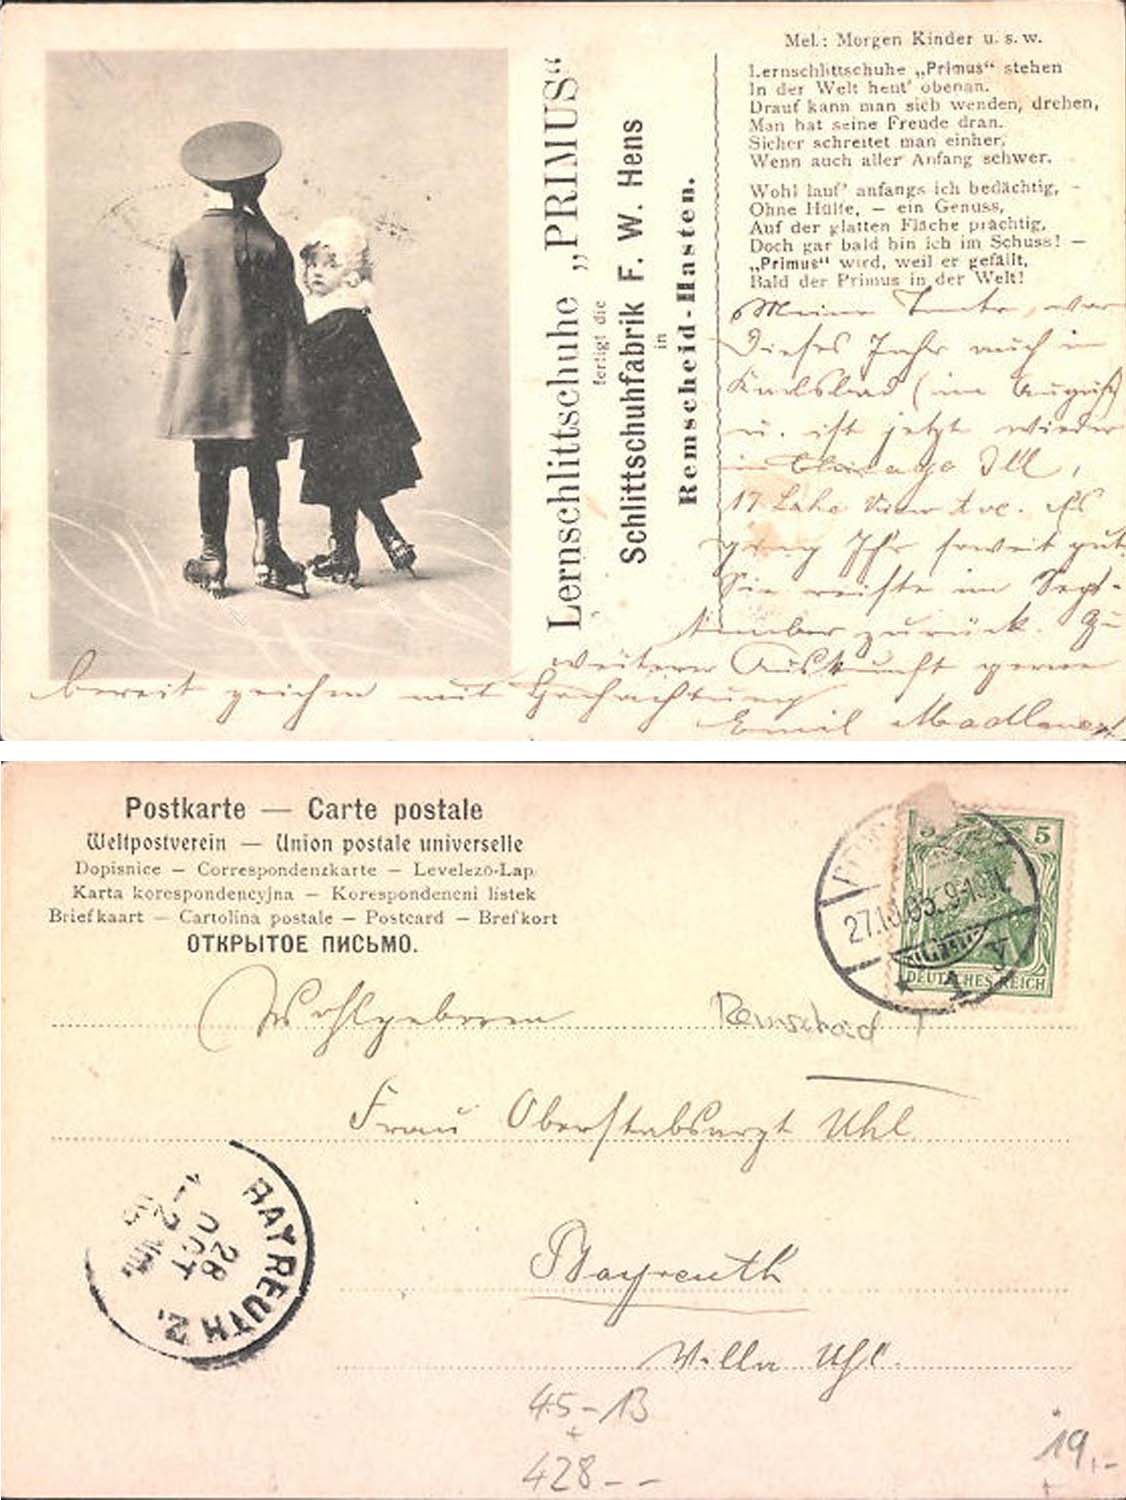 Lernschlittschuhe „PRIMUS“
fertigt die
Schlittschuhfabrik F. W. Hens
in
Remscheid-Hasten.
Mel.: Morgen Kinder u. s. w.
Lernschlittschuhe „Primus“ stehen
In der Welt heut' obenan.
Drauf kann man sich wenden, drehen,
Man hat seine Freude dran.
Sicher schreitet man einher,
Wenn auch aller Anfang schwer.
Wohl lauf' anfangs ich bedächtig, –
Ohne Hülfe, – ein Genuss,
Auf der glatten Fläche prächtig,
Doch gar bald bin ich im Schuss! –
„Primus“ wird, weil er gefällt,
Bald der Primus in der Welt!
Meine Tante, war
dieses Jahr auch in
Karlsbad (im August)
u. ist jetzt wieder
in Chicago Ill,
17 Lake View Ave. Es
ging Ihr soweit gut
Sie reiste im Sept-
ember zurück. Zu
weiterer Auskunft gerne
bereit zeichne mit Hochachtung
Emil
Postkarte — Carte postale
Weltpostverein — Union postale universelle
Dopisnice — Correspondenzkarte — Levelezö-Lap
Karta korespondencyjna — Korespondencni listek
Briefkaart — Cartolina postale — Postcard — Brefkort
ОТКРЫТОЕ ПИСЬМО.
5 5
DEUTSCHES REICH
27.10.05. 9-10V.
Wohlgeboren
Remscheid
Frau Oberstabsarzt Uhl
BAYREUTH 2.
28
OCT
Bayreuth
Villa Uhl.
45-13
+
428--
19,-